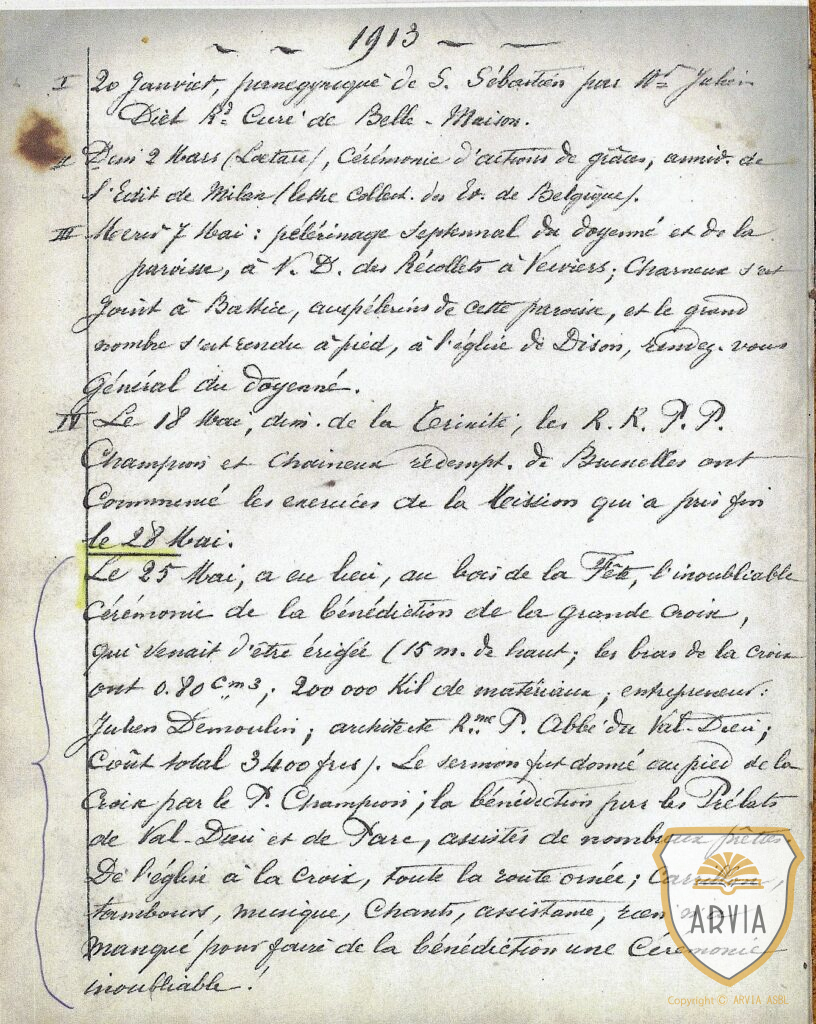 1913
I 20 Janvier, panegyrique de S. Sébastien par Mr Julien
Diet Rd Curé de Belle-Maison.
II Dim 2 Mars (Laetare), Cérémonie d'actions de grâces, anniv. de
l'Edit de Milan (lettre collect. des Ev. de Belgique).
III Mercr 7 Mai : pélérinage septennal du doyenné et de la
paroisse, à N. D. des Récollets à Verviers; Charneux s'est
joint à Battice, aux pélerins de cette paroisse, et le grand
nombre s'est rendu à pied, à l'église de Dison, rendez-vous
Général du doyenné.
IV Le 18 Mai, dim. de la Trinité, les R. R. P. P.
Champion et Chaineux rédempt. de Bruxelles ont
Commencé les exercices de la Mission qui a pris fin
le 28 Mai.
Le 25 Mai, a eu lieu, au bois de la Fête, l'inoubliable
Cérémonie de la bénédiction de la grande Croix,
qui venait d'être érigée (15 m. de haut; les bras de la croix
ont 0.80 cm3; 200 000 Kil de matériaux; entrepreneur:
Julien Demoulin; architecte R.me P. Abbé du Val-Dieu;
Coût total 3400 frcs). Le sermon fut donné au pied de la
Croix par le P. Champion; la bénédiction par les Prélats
de Val-Dieu et de Parc, assistés de nombreux prêtres.
De l'église à la Croix, toute la route ornée; Carrillon,
tambours, musique, Chants, assistance, rien n'a
manqué pour faire de la bénédiction une Cérémonie
inoubliable!
ARVIA
Copyright © ARVIA ASBL